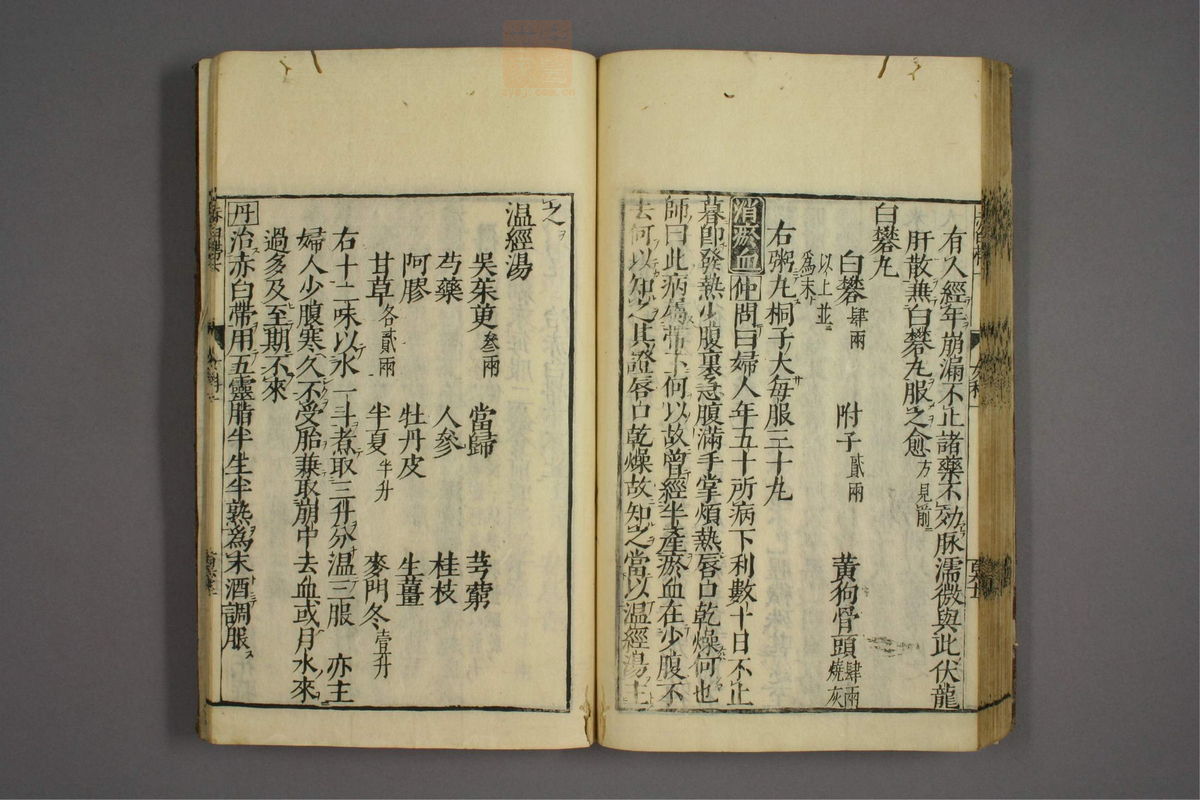 有人經年崩漏不止諸藥不効脉濡微與此伏龍
肝散兼白礬丸服之愈方見前
白礬丸
白礬肆兩 附子貳兩 黃狗骨頭肆兩燒灰
以上並爲末
右粥丸桐子大每服三十丸
消瘀血仲問曰婦人年五十所病下利數十日不止
暮即發熱少腹裏急腹滿手掌煩熱唇口乾燥何也
師曰此病屬帶下何以故曾經半產瘀血在少腹不
去何以知之其證唇口乾燥故知之當以温經湯主
之
温經湯
吳茱萸叁兩 當歸 芎藭
芍藥 人參 桂枝
阿膠 牡丹皮 生薑
甘草各貳兩 半夏半升 麥門冬壹升
右十二味以水一斗煮取三升分温三服 亦主
婦人少腹寒久不受胎兼取崩中去血或月水來
過多及至期不來
丹治赤白帶用五靈脂半生半熟爲末酒調服